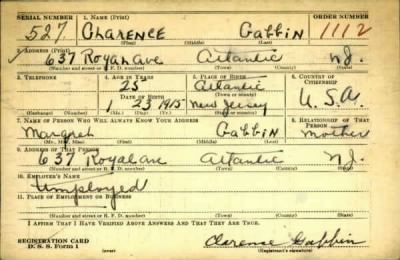 SERIAL NUMBER 1. NAME (Print) ORDER NUMBER
527 Clarence Gabbin 1112
(First) (Middle) (Last)
2. ADDRESS (Print)
637 Royal ave Atlantic N.J.
(Number and street or R. F. D. number) (Town) (County) (State)
3. TELEPHONE 4. AGE IN YEARS 5. PLACE OF BIRTH 6. COUNTRY OF CITIZENSHIP
25 Atlantic
DATE OF BIRTH (Town or county)
1 23 1915 New Jersey U.S.A.
(Exchange) (Number) (Mo.) (Day) (Yr.) (State or country)
7. NAME OF PERSON WHO WILL ALWAYS KNOW YOUR ADDRESS 8. RELATIONSHIP OF THAT PERSON
Margret Gabbin Mother
(Mr., Mrs., Miss) (First) (Middle) (Last)
9. ADDRESS OF THAT PERSON
637 Royal ave Atlantic N.J.
(Number and street or R. F. D. number) (Town) (County) (State)
10. EMPLOYER'S NAME
Umployed
11. PLACE OF EMPLOYMENT OR BUSINESS
(Number and street or R. F. D. number) (Town) (County) (State)
I AFFIRM THAT I HAVE VERIFIED ABOVE ANSWERS AND THAT THEY ARE TRUE.
REGISTRATION CARD
D. S. S. Form 1 Clarence Gabbin